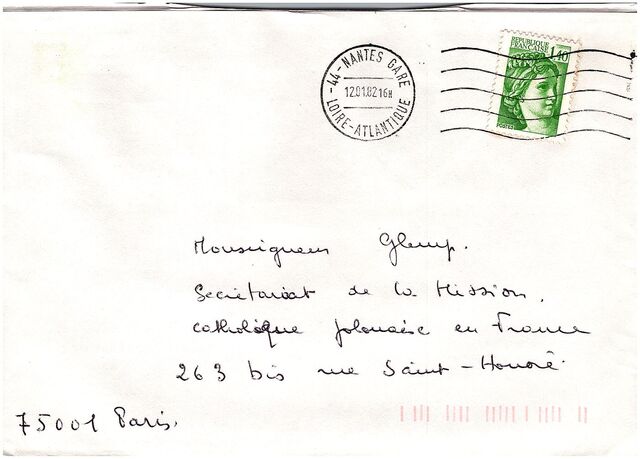 44 - NANTES GARE
12.01.82 16H
LOIRE-ATLANTIQUE
REPUBLIQUE
FRANÇAISE
1,40
POSTES
Monseigneur Glemp.
Secrétariat de la Mission.
catholique polonaise en France
263 bis rue Saint-Honoré.
75001 Paris.